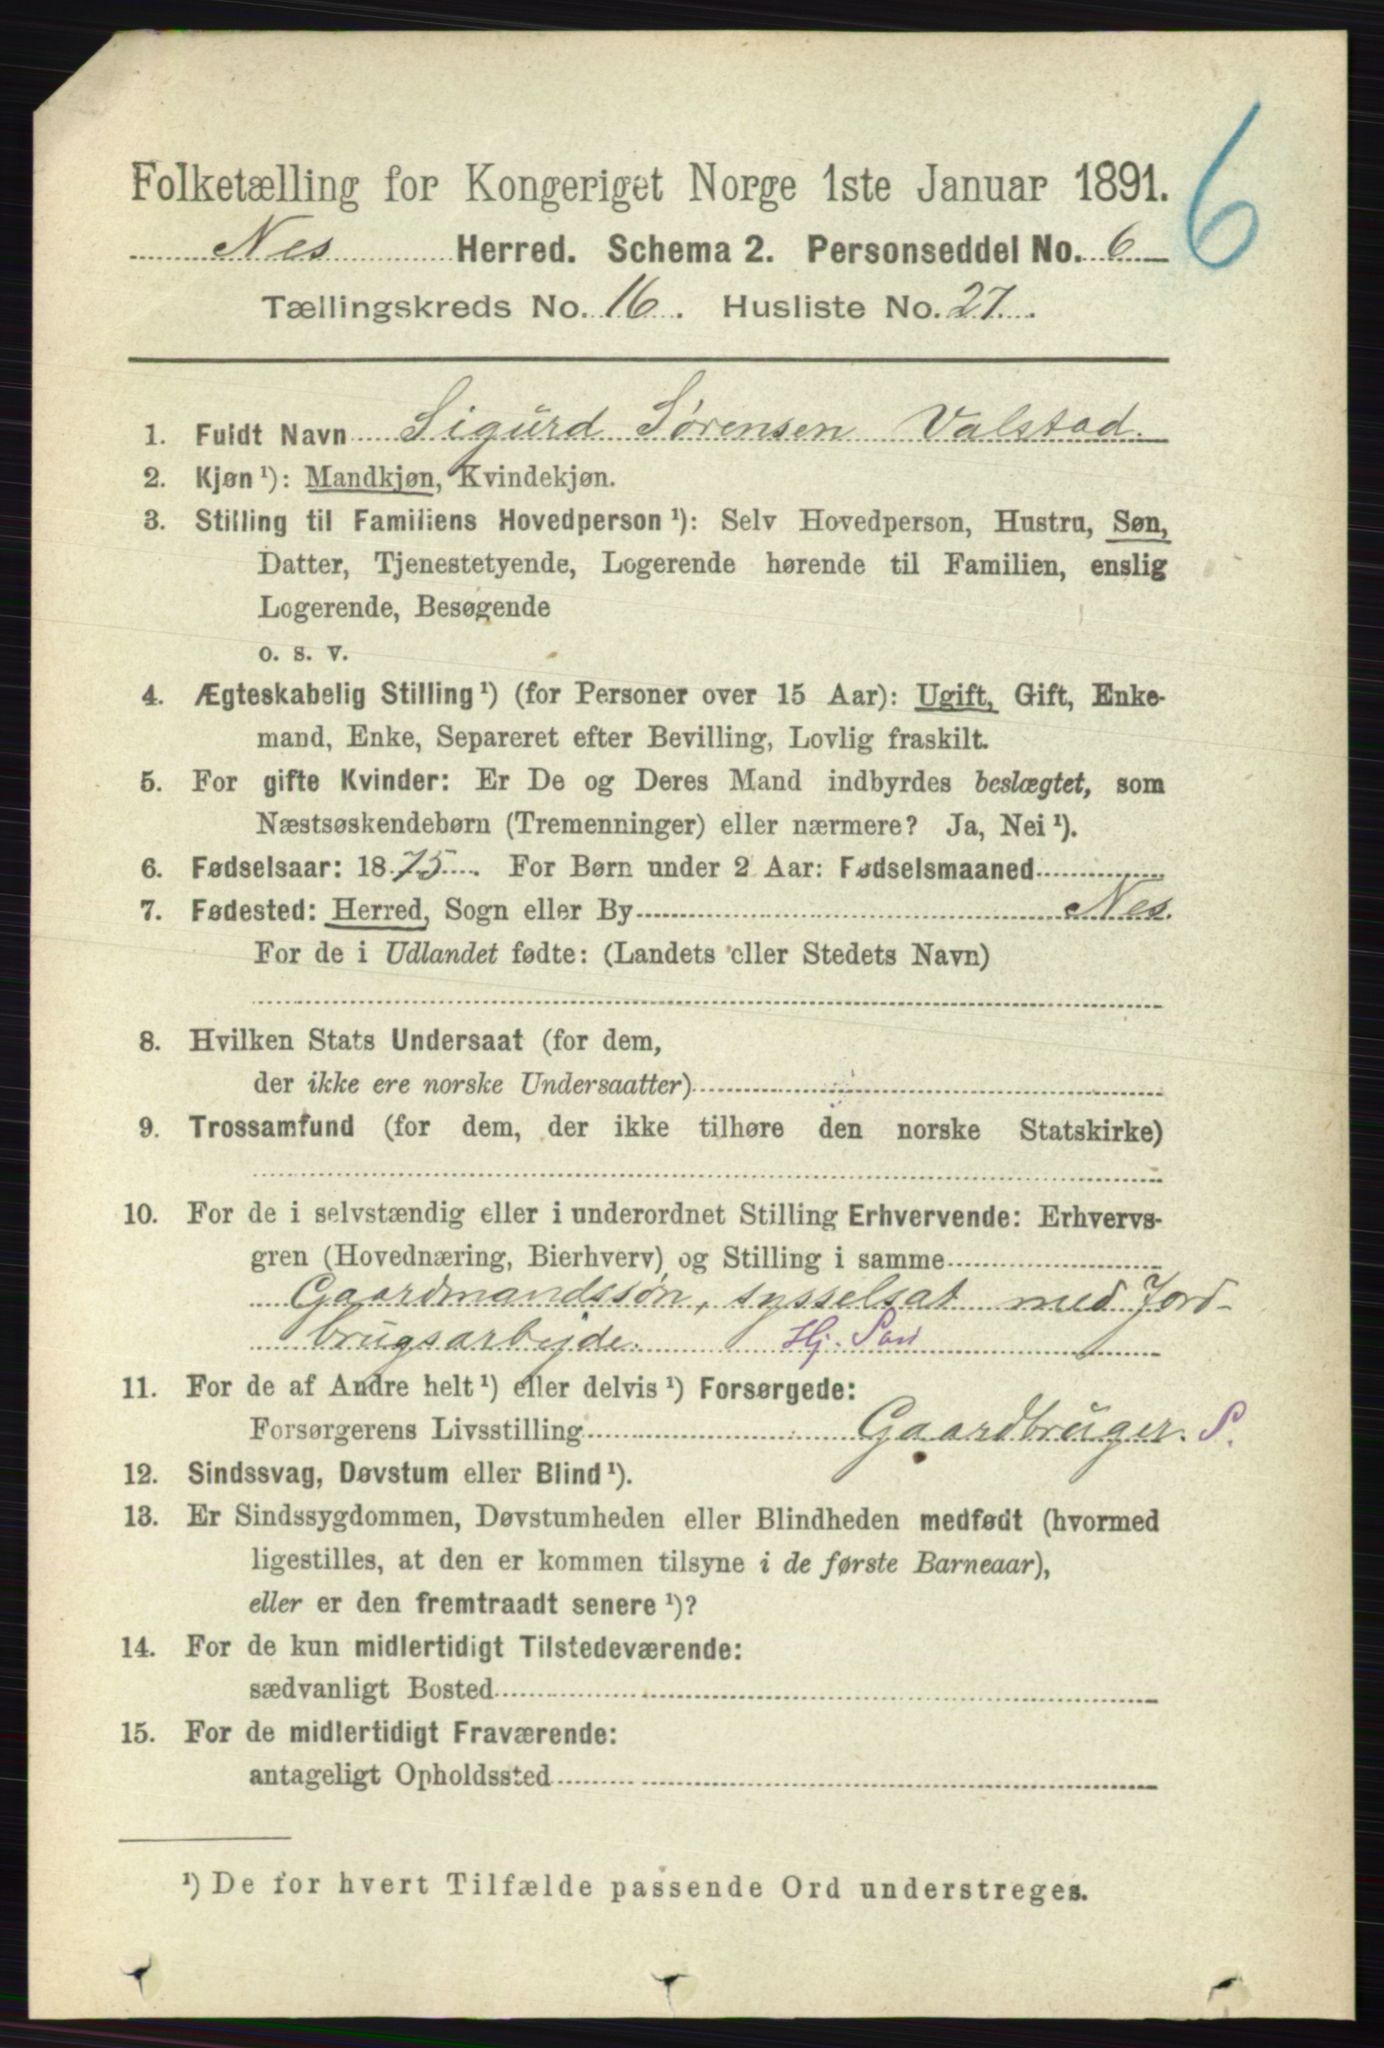 6
Folketælling for Kongeriget Norge 1ste Januar 1891.
Nes Herred. Schema 2. Personseddel No. 6
Tællingskreds No. 16. Husliste No. 27.
1. Fuldt Navn Sigurd Sørensen Valstad.
2. Kjøn¹): Mandkjøn, Kvindekjøn.
3. Stilling til Familiens Hovedperson¹): Selv Hovedperson, Hustru, Søn,
Datter, Tjenestetyende, Logerende hørende til Familien, enslig
Logerende, Besøgende
o. s. v.
4. Ægteskabelig Stilling¹) (for Personer over 15 Aar): Ugift, Gift, Enke-
mand, Enke, Separeret efter Bevilling, Lovlig fraskilt.
5. For gifte Kvinder: Er De og Deres Mand indbyrdes beslægtet, som
Næstsøskendebørn (Tremenninger) eller nærmere? Ja, Nei¹).
6. Fødselsaar: 1875. For Børn under 2 Aar: Fødselsmaaned
7. Fødested: Herred, Sogn eller By Nes.
For de i Udlandet fødte: (Landets eller Stedets Navn)
8. Hvilken Stats Undersaat (for dem,
der ikke ere norske Undersaatter)
9. Trossamfund (for dem, der ikke tilhøre den norske Statskirke)
10. For de i selvstændig eller i underordnet Stilling Erhvervende: Erhvervs-
gren (Hovednæring, Bierhverv) og Stilling i samme
Gaardmandssøn, sysselsat med Jord-
brugsarbejde. Hj. Søn
11. For de af Andre helt¹) eller delvis¹) Forsørgede:
Forsørgerens Livsstilling Gaardbruger. S.
12. Sindssvag, Døvstum eller Blind¹).
13. Er Sindssygdommen, Døvstumheden eller Blindheden medfødt (hvormed
ligestilles, at den er kommen tilsyne i de første Barneaar),
eller er den fremtraadt senere¹)?
14. For de kun midlertidigt Tilstedeværende:
sædvanligt Bosted
15. For de midlertidigt Fraværende:
antageligt Opholdssted
¹) De for hvert Tilfælde passende Ord understreges.